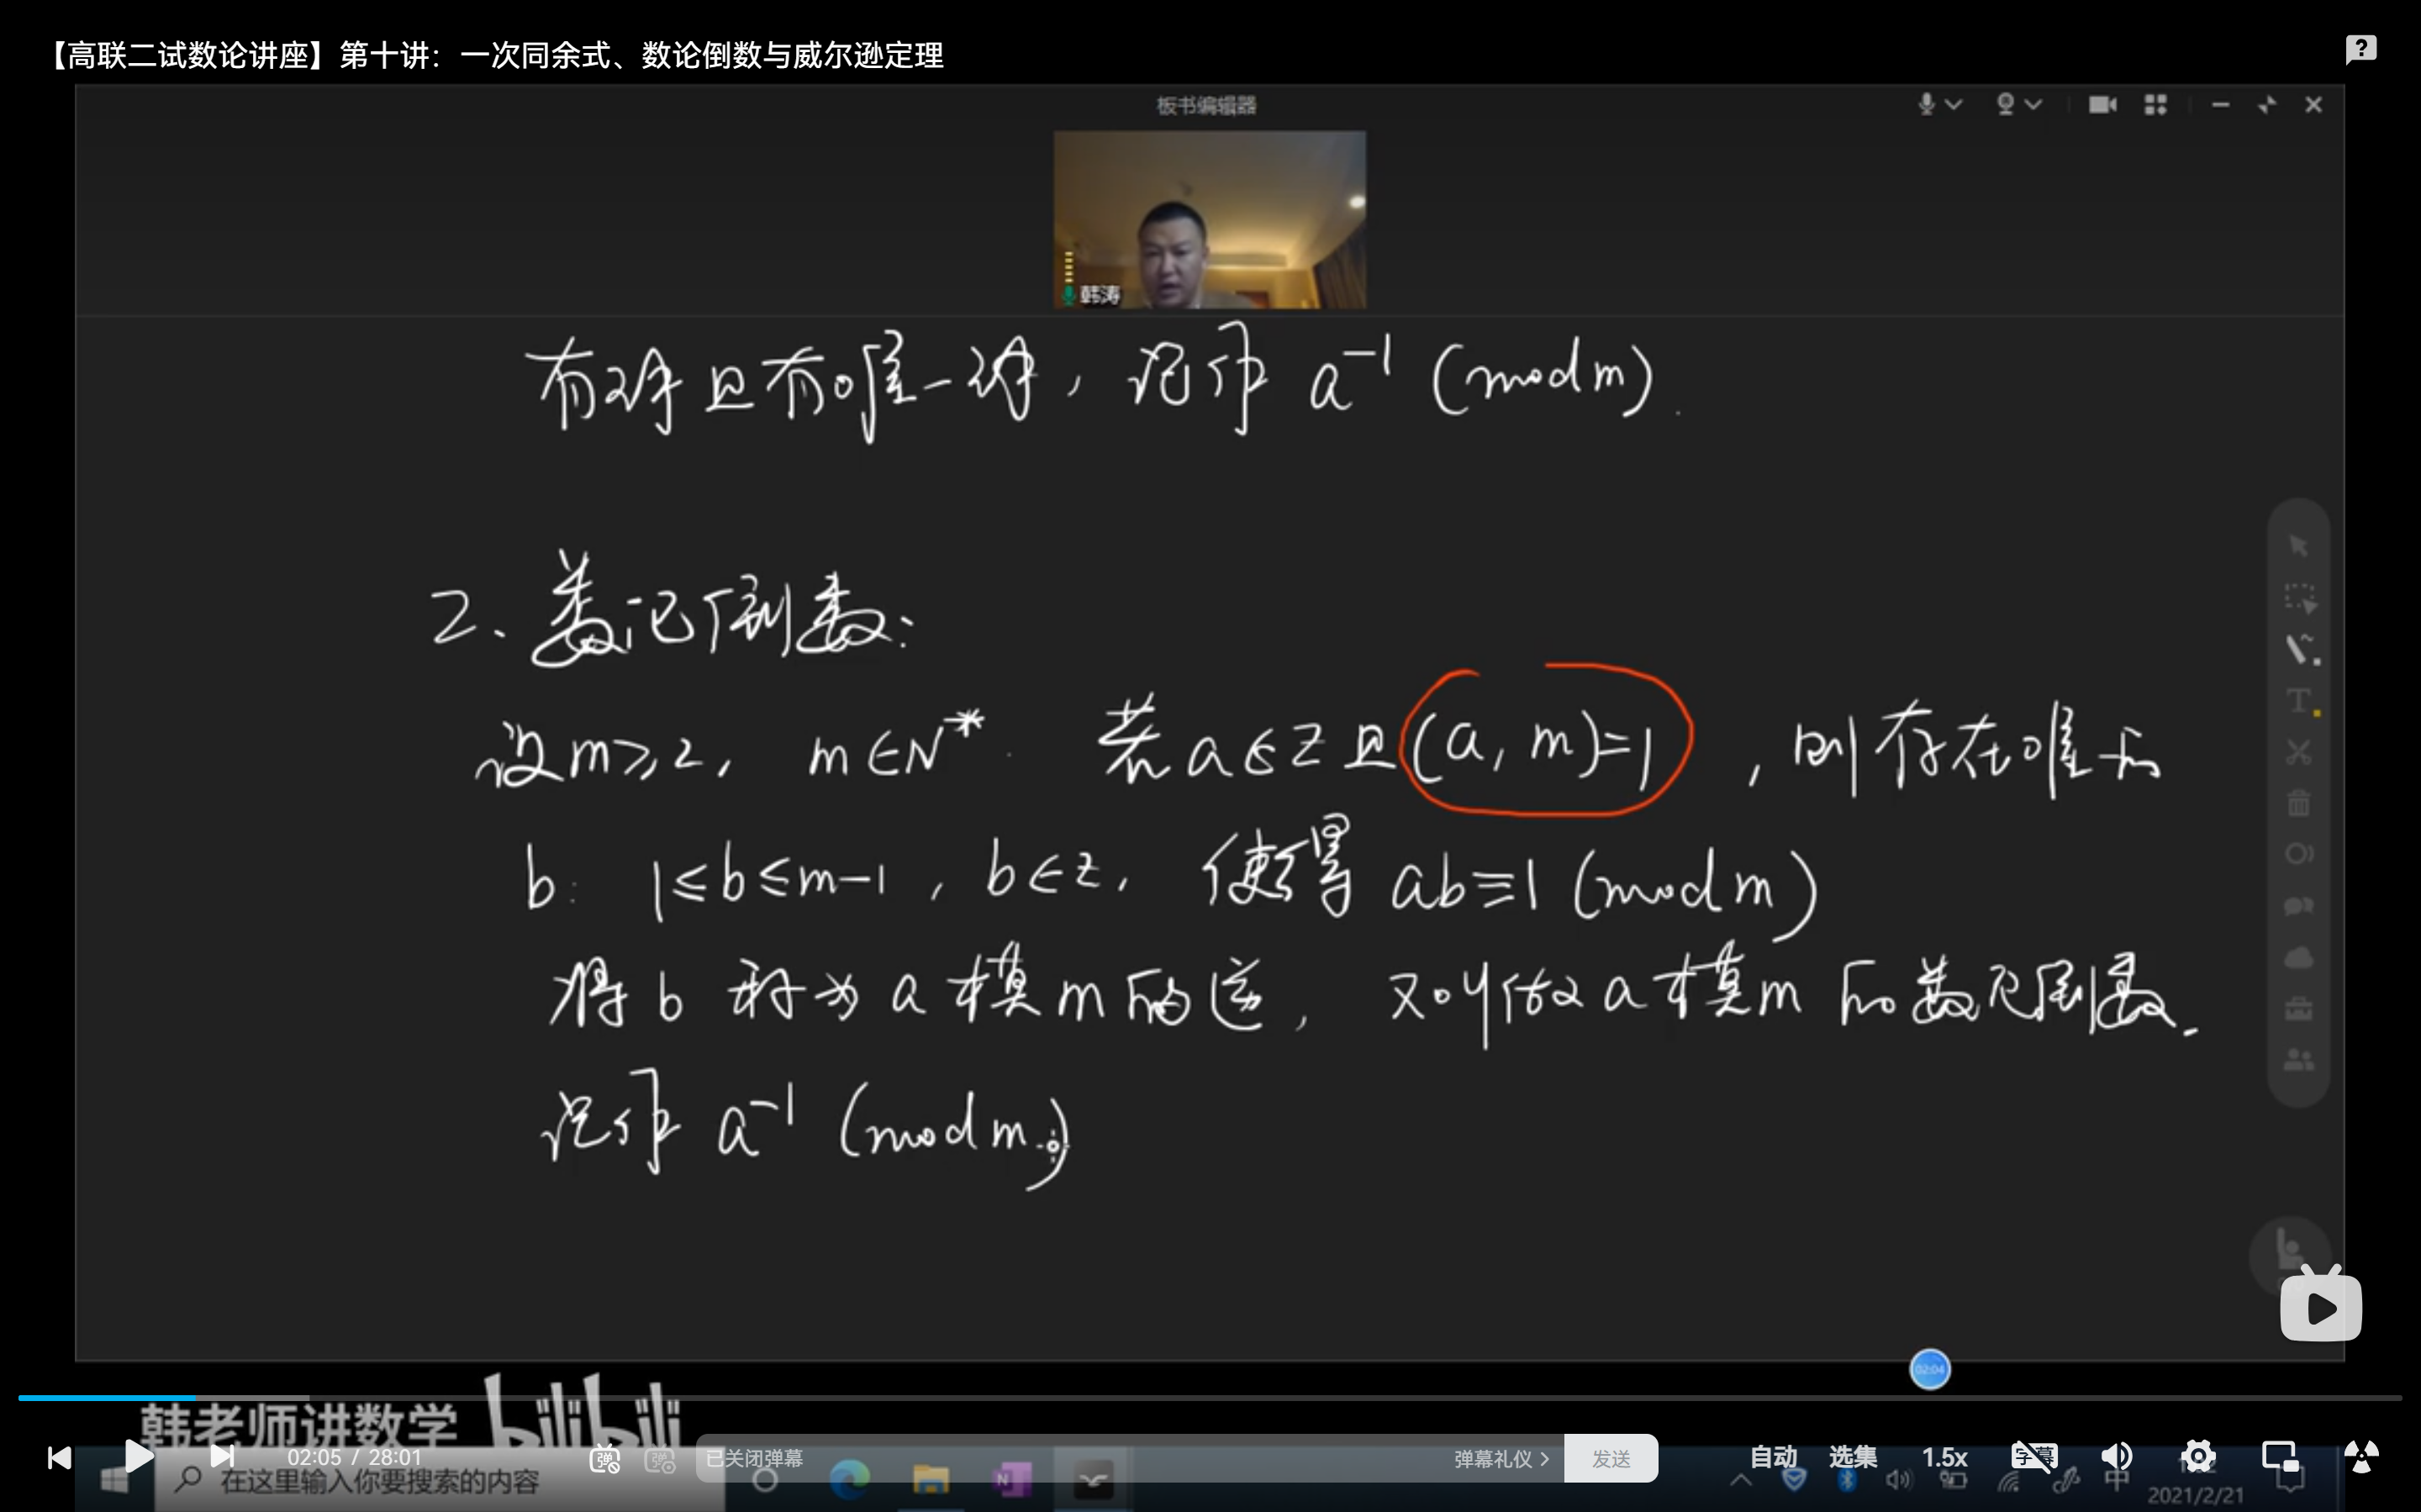 【高联二试数论讲座】第十讲：一次同余式、数论倒数与威尔逊定理
板书编辑器
韩涛
有解且有唯一解，记作 a⁻¹ (mod m).
2、数论倒数：
设m≥2, m∈N* 若a∈Z且(a, m)=1, 则存在唯一的
b: 1≤b≤m-1, b∈Z, 使得 ab≡1 (mod m)
将b称为a模m的逆, 又叫做a模m的数论倒数.
记作 a⁻¹ (mod m)
02:04
韩老师讲数学 bilibili
02:05 / 28:01
已关闭弹幕
弹幕礼仪
发送
自动
选集
1.5x
字幕
在这里输入你要搜索的内容
中
2021/2/21